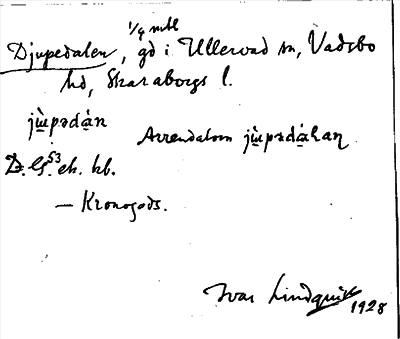 1/4 mtl
Djupedalen, gd i Ullervad sn, Vadsbo
hd, Skaraborgs l.
jɯ̀pədá̤n
Arrendatorn jɯ̀pədá̤han
D. G. 53 ek. hb.
– Kronogods.
Ivar Lindquist
1928